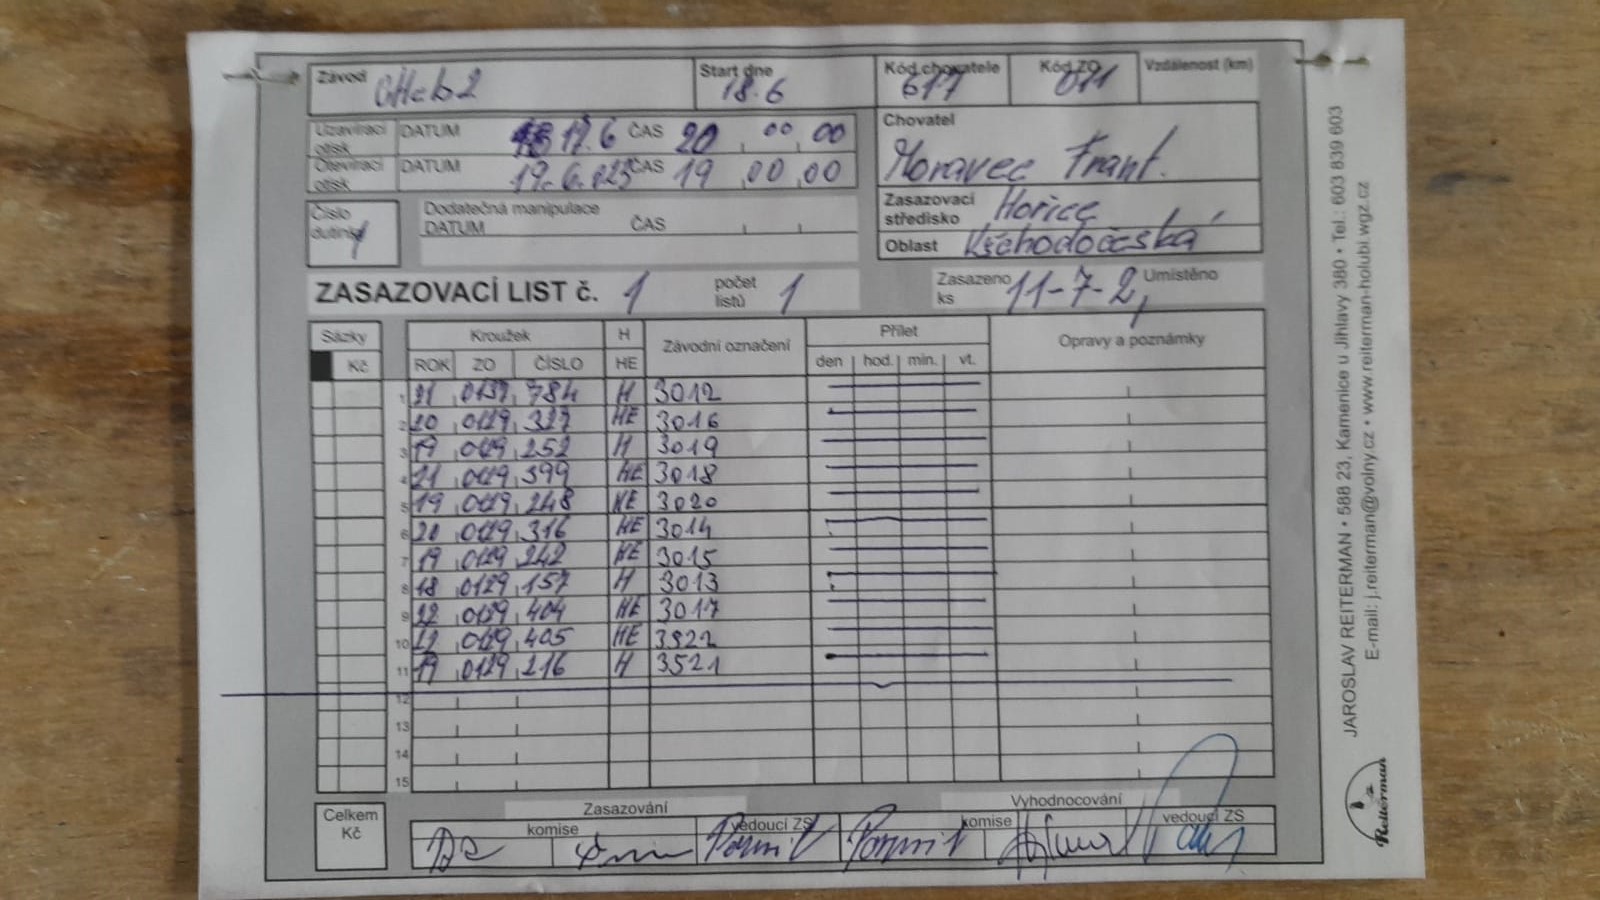 Závod Cheb2 Start dne 18.6 Kód chovatele 677 Kód ZO 071 Vzdálenost (km)
Uzavírací otisk DATUM 17.6 ČAS 20 00 00
Otevírací otisk DATUM 19.6.023 ČAS 19 00 00
Chovatel
Moravec Frant.
Zasazovací středisko Hořice
Oblast Východočeská
Číslo dutinky 1
Dodatečná manipulace
DATUM ČAS
ZASAZOVACÍ LIST č. 1 počet listů 1 Zasazeno ks 11-7-2, Umístěno
Sázky Kroužek H Závodní označení Přílet Opravy a poznámky
Kč ROK ZO ČÍSLO HE den hod. min. vt.
1 21 0137 784 H 3012
2 20 0129 327 HE 3016
3 19 0129 252 H 3019
4 21 0129 399 HE 3018
5 19 0129 248 HE 3020
6 20 0129 316 HE 3014
7 19 0129 242 HE 3015
8 18 0129 157 H 3013
9 22 0129 404 HE 3017
10 22 0129 405 HE 3522
11 19 0129 216 H 3521
12
13
14
15
Celkem Kč
Zasazování Vyhodnocování
komise vedoucí ZS komise vedoucí ZS
JAROSLAV REITERMAN • 588 23, Kamenice u Jihlavy 380 • Tel.: 603 839 603
E-mail: j.reiterman@volny.cz • www.reiterman-holubi.wgz.cz
Reiterman